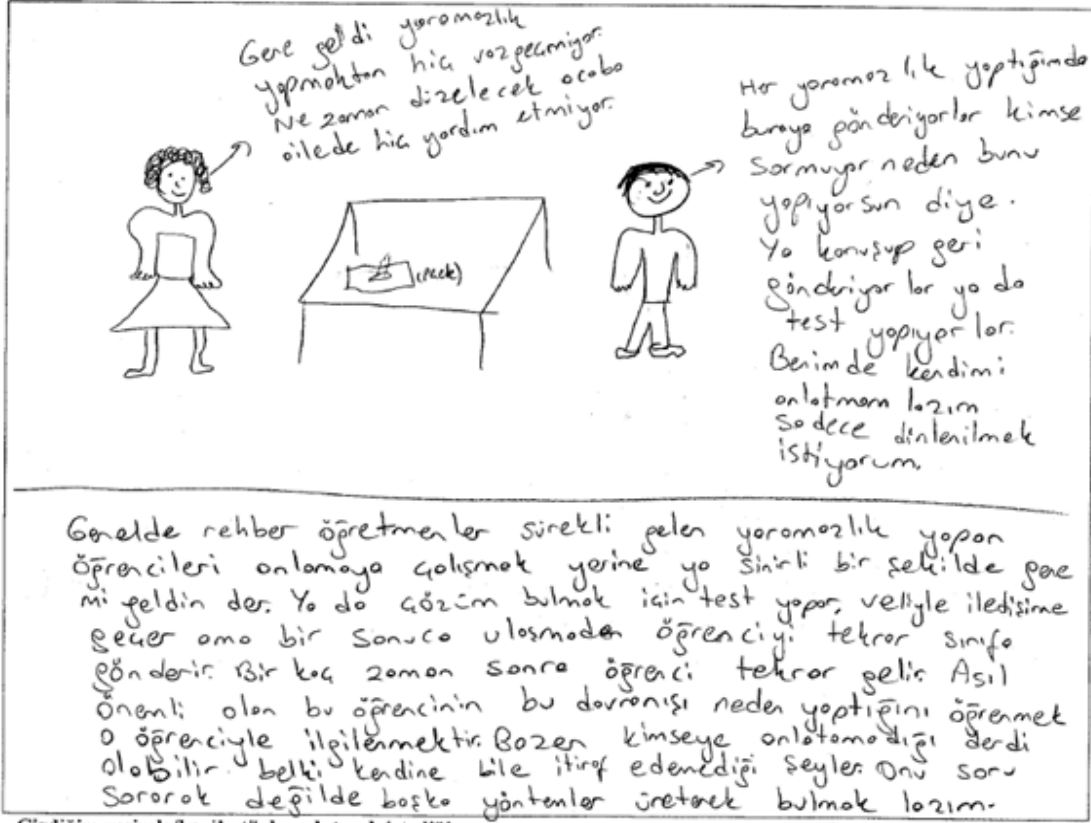 Gene geldi yaramazlık
yapmaktan hiç vazgeçmiyor.
Ne zaman dizelecek acaba
ailede hiç yardım etmiyor.
Her yaramazlık yaptığımda
buraya gönderiyorlar kimse
sormuyor neden bunu
yapıyorsun diye.
Ya konuşup geri
gönderiyorlar ya da
test yapıyorlar.
Benimde kendimi
anlatmam lazım
Sadece dinlenilmek
istiyorum.
Genelde rehber öğretmenler sürekli gelen yaramazlık yapan
öğrencileri anlamaya çalışmak yerine ya sinirli bir şekilde gene
mi geldin der. Ya da çözüm bulmak için test yapar, veliyle iledişime
geçer ama bir sonuca ulaşmadan öğrenciyi tekrar sınıfa
gönderir. Bir kaç zaman sonra öğrenci tekrar gelir. Asıl
önemli olan bu öğrencinin bu davranışı neden yaptığını öğrenmek
o öğrenciyle ilgilenmektir. Bazen kimseye anlatamadığı derdi
olabilir belki kendine bile itiraf edemediği şeyler. Onu soru
sorarak değilde başka yöntemler üreterek bulmak lazım.